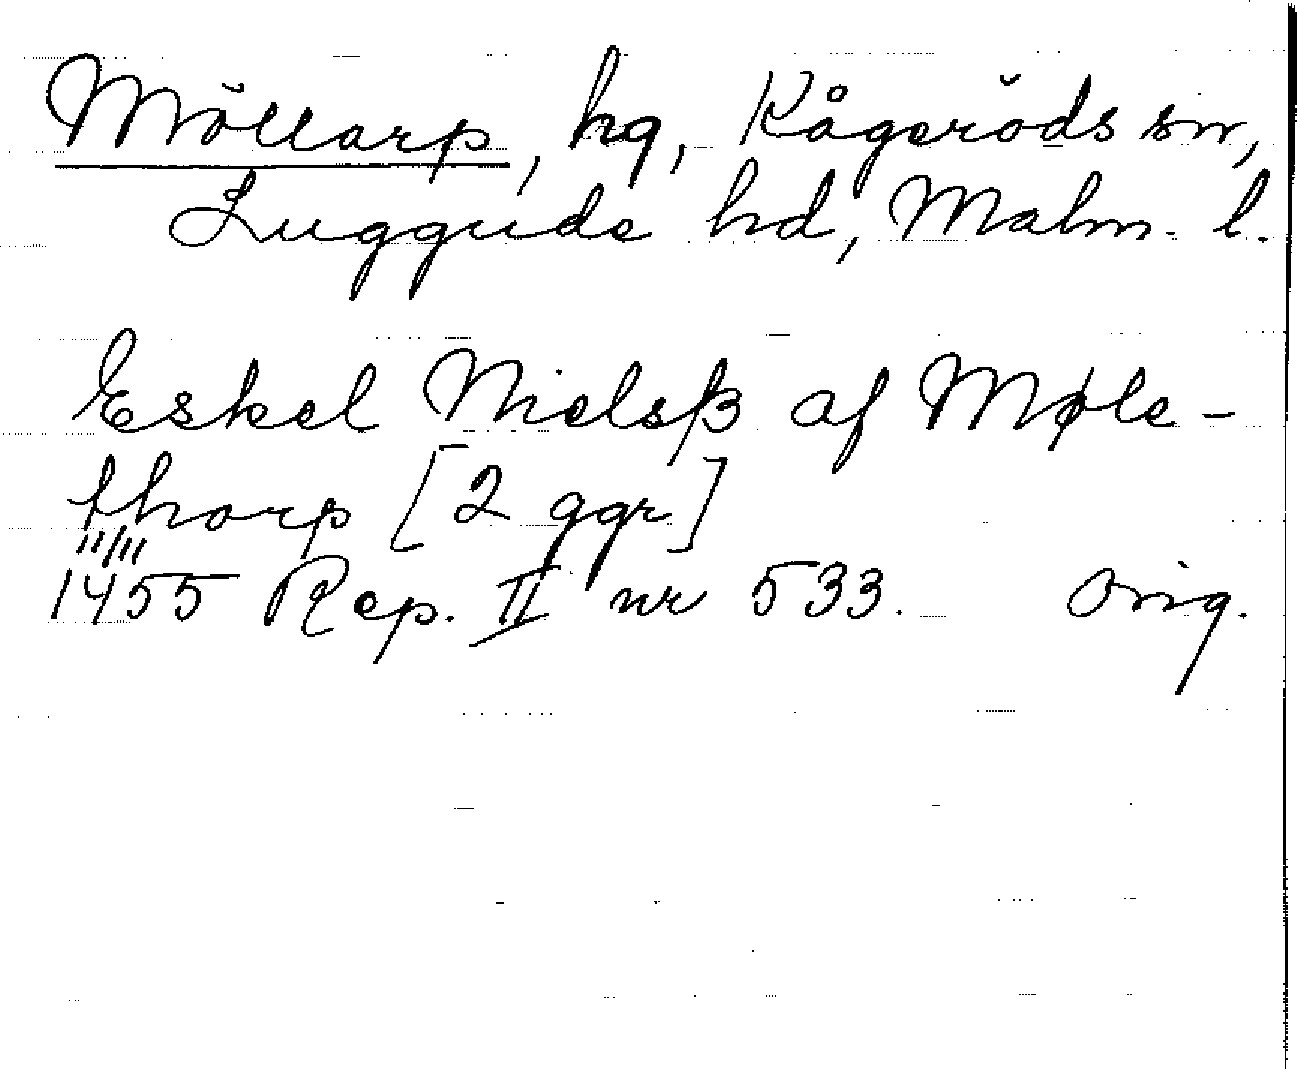 Möllarp, hg, Kågeröds sn,
Luggude hd, Malm. l.
Eskel Nielsβ af Møle-
thorp [2 ggr]
11/11
1455 Rep. II nr 533. Orig.